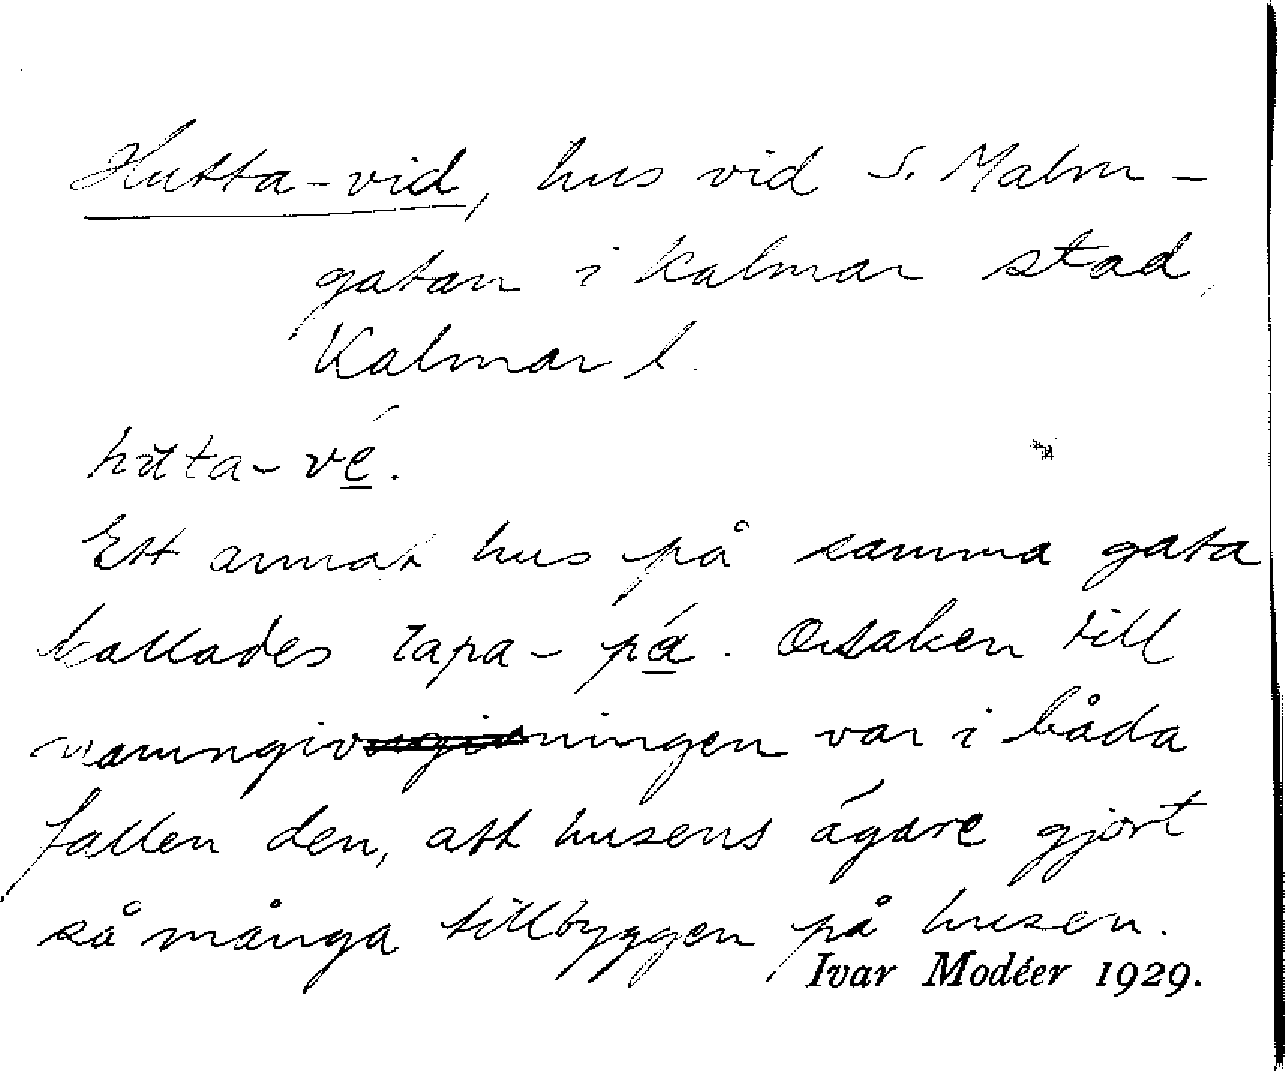 Hutta-vid, hus vid S. Malm-
gatan i Kalmar stad,
Kalmar l.
hutta-vé.
Ett annat hus på samma gata
kallades tapa-pá. Orsaken till
namngivningen var i båda
fallen den, att husens ägare gjort
så många tillbyggen på husen.
Ivar Modéer 1929.